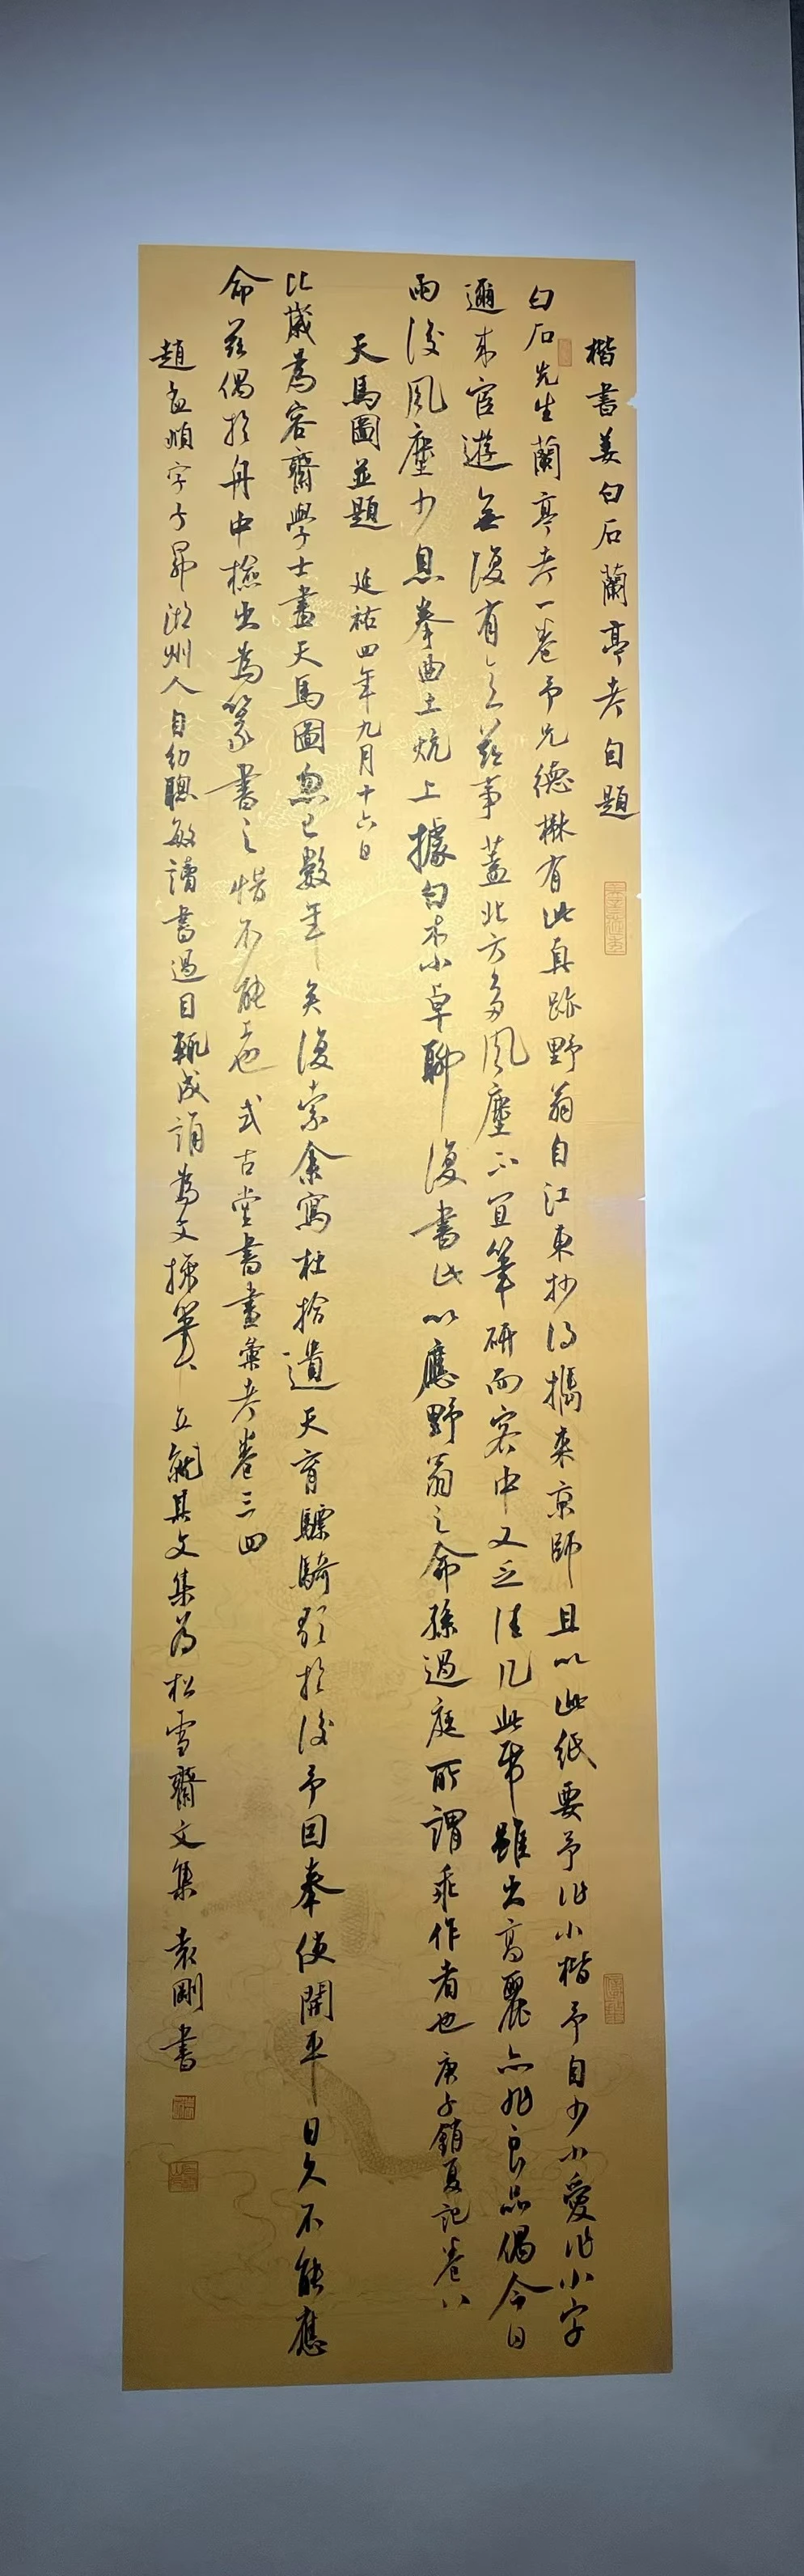 楷書姜白石蘭亭考自題
白石先生蘭亭考一卷予兄德楙有此真跡野翁自江東抄得攜來京師且以此紙要予作小楷予自少小愛作小字
邇來宦遊無復有意茲事蓋北方多風塵不宜筆研而客中又乏佳几此帋雖出高麗亦非良品偶今日
雨後風塵少息拳曲土炕上據白木小卓聊復書此以應野翁之命孫過庭所謂乖作者也 庚子銷夏記卷八
天馬圖並題 延祐四年九月十六日
比歲為容齋學士畫天馬圖忽已數年矣復索余寫杜拾遺天育驃騎歌於後予因奉使開平日久不能應
命茲偶於舟中檢出為篆書之惜不能工也 式古堂書畫彙考卷三四
趙孟頫字子昂湖州人自幼聰敏讀書過目輒成誦為文操筆立就其文集為松雪齋文集 袁剛書